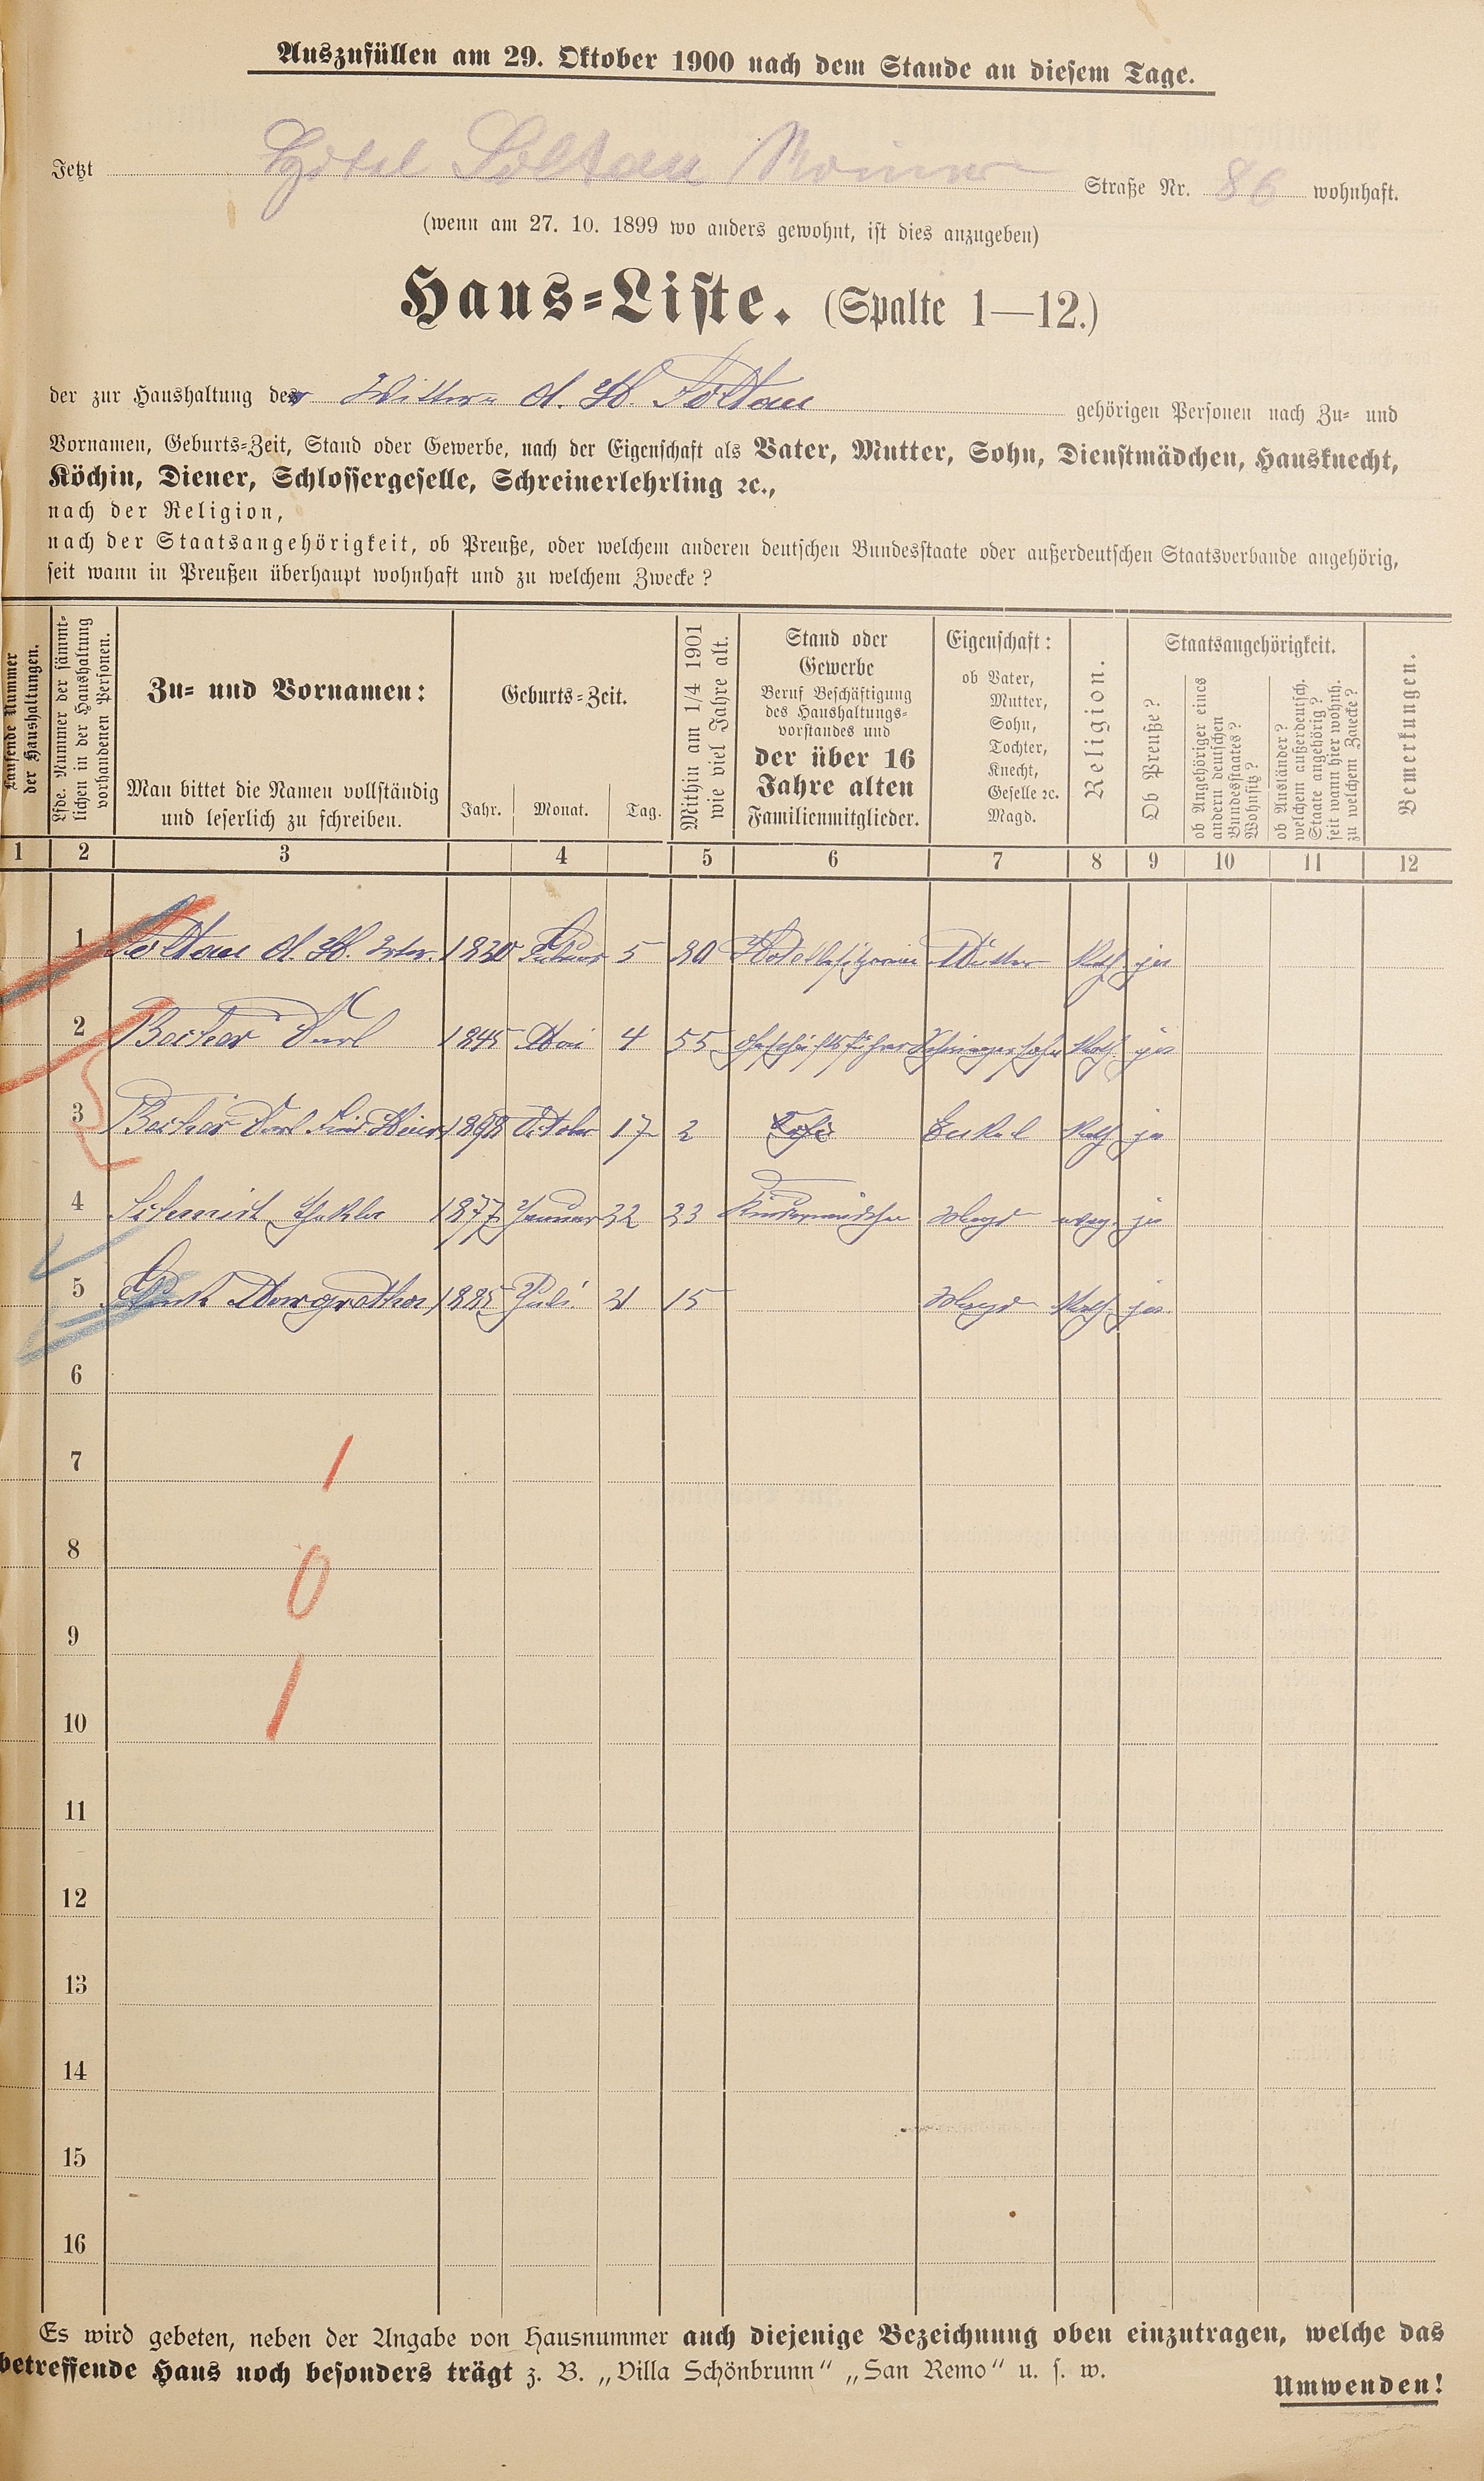 Auszufüllen am 29. Oktober 1900 nach dem Stande an diesem Tage.
Jetzt Hotel Soltau Straße Nr. 86 wohnhaft.
(wenn am 27. 10. 1899 wo anders gewohnt, ist dies anzugeben)
Haus-Liste. (Spalte 1—12.)
der zur Haushaltung der Soltau gehörigen Personen nach Zu- und
Vornamen, Geburts-Zeit, Stand oder Gewerbe, nach der Eigenschaft als Vater, Mutter, Sohn, Dienstmädchen, Hausknecht,
Köchin, Diener, Schlossergeselle, Schreinerlehrling ꝛc.,
nach der Religion,
nach der Staatsangehörigkeit, ob Preuße, oder welchem anderen deutschen Bundesstaate oder außerdeutschen Staatsverbande angehörig,
seit wann in Preußen überhaupt wohnhaft und zu welchem Zwecke?
Laufende Nummer
der Haushaltungen.
Lfde. Nummer der sämmt-
lichen in der Haushaltung
vorhandenen Personen.
Zu- und Vornamen:
Man bittet die Namen vollständig
und leserlich zu schreiben.
Geburts-Zeit.
Jahr. Monat. Tag.
Mithin am 1/4 1901
wie viel Jahre alt.
Stand oder
Gewerbe
Beruf Beschäftigung
des Haushaltungs-
vorstandes und
der über 16
Jahre alten
Familienmitglieder.
Eigenschaft:
ob Vater,
Mutter,
Sohn,
Tochter,
Knecht,
Geselle ꝛc.
Magd.
Religion.
Staatsangehörigkeit.
Ob Preuße?
ob Angehöriger eines
andern deutschen
Bundesstaates?
Wohnsitz?
ob Ausländer?
welchem außerdeutsch.
Staate angehörig?
seit wann hier wohnh.
zu welchem Zwecke?
Bemerkungen.
1 2 3 4 5 6 7 8 9 10 11 12
1 Soltau 1820 Februar 5 80 Hotelbesitzerin Mutter Kath ja
2 Becker Carl 1845 Mai 4 55 Geschäftsführer Schwiegersohn Kath ja
3 Becker Carl 1898 October 17 2 Enkel Kath ja
4 Schmidt Thekla 1877 Januar 22 23 Kindermädchen Magd evang. ja
5 Margretha 1885 Juli 21 15 Magd Kath ja
6
7
8
9
10
1
0
1
11
12
13
14
15
16
Es wird gebeten, neben der Angabe von Hausnummer auch diejenige Bezeichnung oben einzutragen, welche das
betreffende Haus noch besonders trägt z. B. „Villa Schönbrunn“ „San Remo“ u. s. w.
Umwenden!